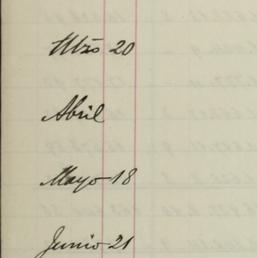 Mzo 20
Abril
Mayo 18
Junio 21